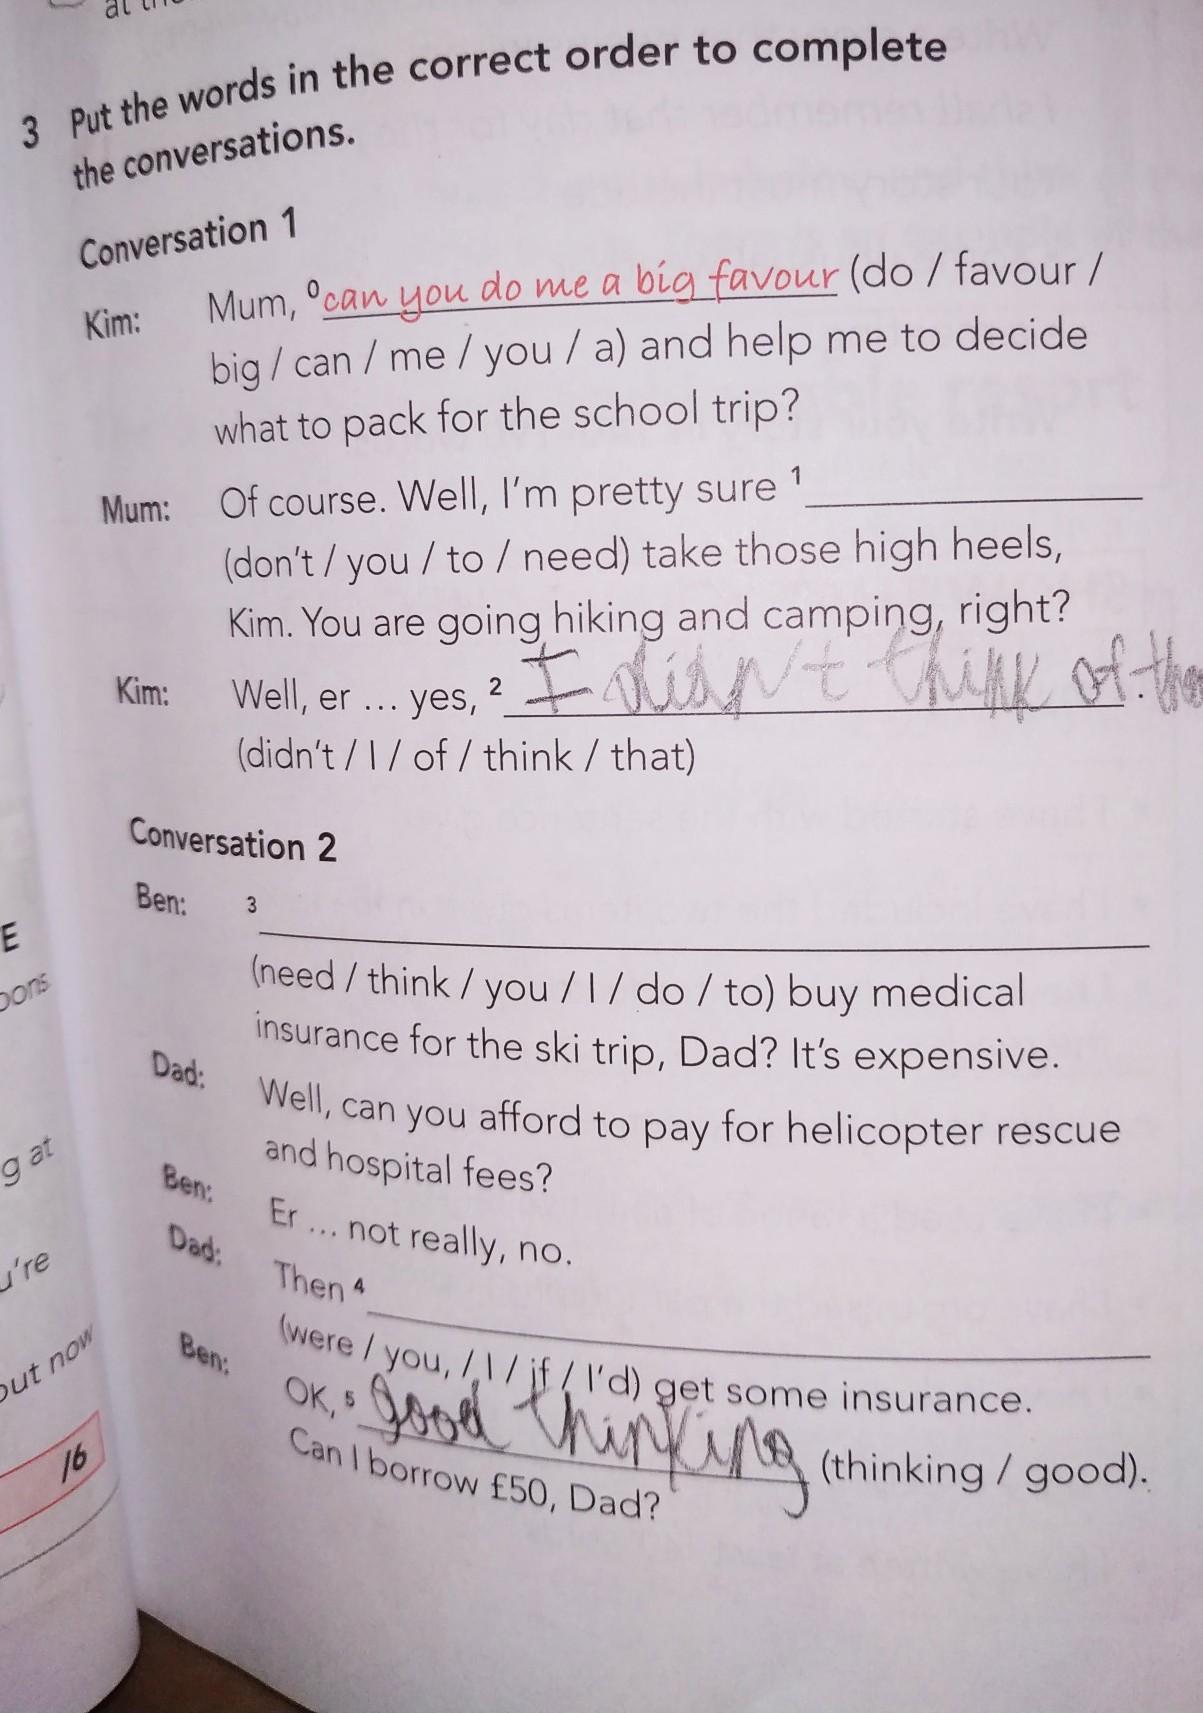 3 Put the words in the correct order to complete
the conversations.
Conversation 1
Kim: Mum, ⁰can you do me a big favour (do / favour /
big / can / me / you / a) and help me to decide
what to pack for the school trip?
Mum: Of course. Well, I'm pretty sure ¹
(don't / you / to / need) take those high heels,
Kim. You are going hiking and camping, right?
Kim: Well, er ... yes, ² I didn't think of.
(didn't / I / of / think / that)
Conversation 2
Ben: ³
(need / think / you / I / do / to) buy medical
insurance for the ski trip, Dad? It's expensive.
Dad: Well, can you afford to pay for helicopter rescue
and hospital fees?
Ben: Er ... not really, no.
Dad: Then ⁴
(were / you, / I / if / I'd) get some insurance.
Ben: OK, ⁵ good thinking (thinking / good).
Can I borrow £50, Dad?
E
g at
but now
16